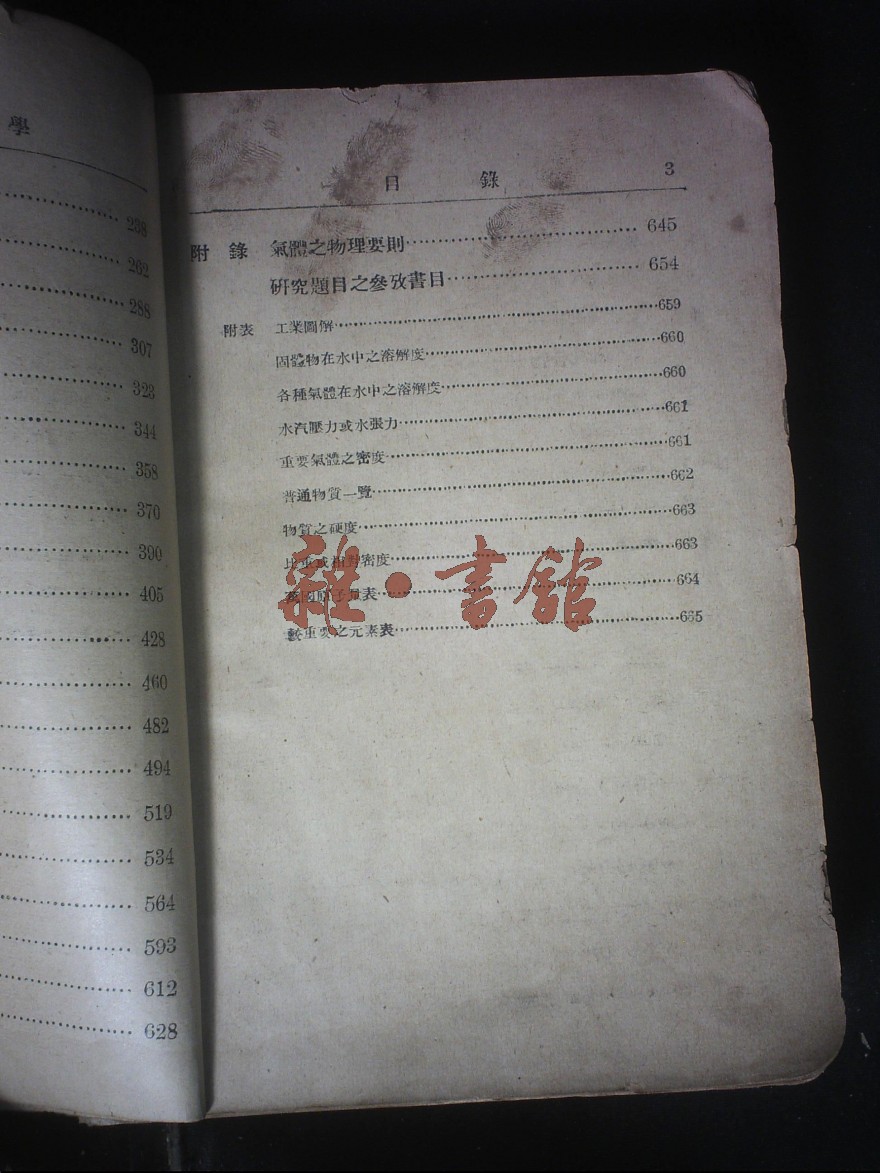 學
238
262
288
307
323
344
358
370
390
405
428
460
482
494
519
534
564
593
612
628
目 錄 3
附 錄 氣體之物理要則 645
研究題目之參攷書目 654
附表 工業圖解 659
固體物在水中之溶解度 660
各種氣體在水中之溶解度 660
水汽壓力或水張力 661
重要氣體之密度 661
普通物質一覽 662
物質之硬度 663
比重或相對密度 663
萬國原子量表 664
較重要之元素表 665
雜·書館